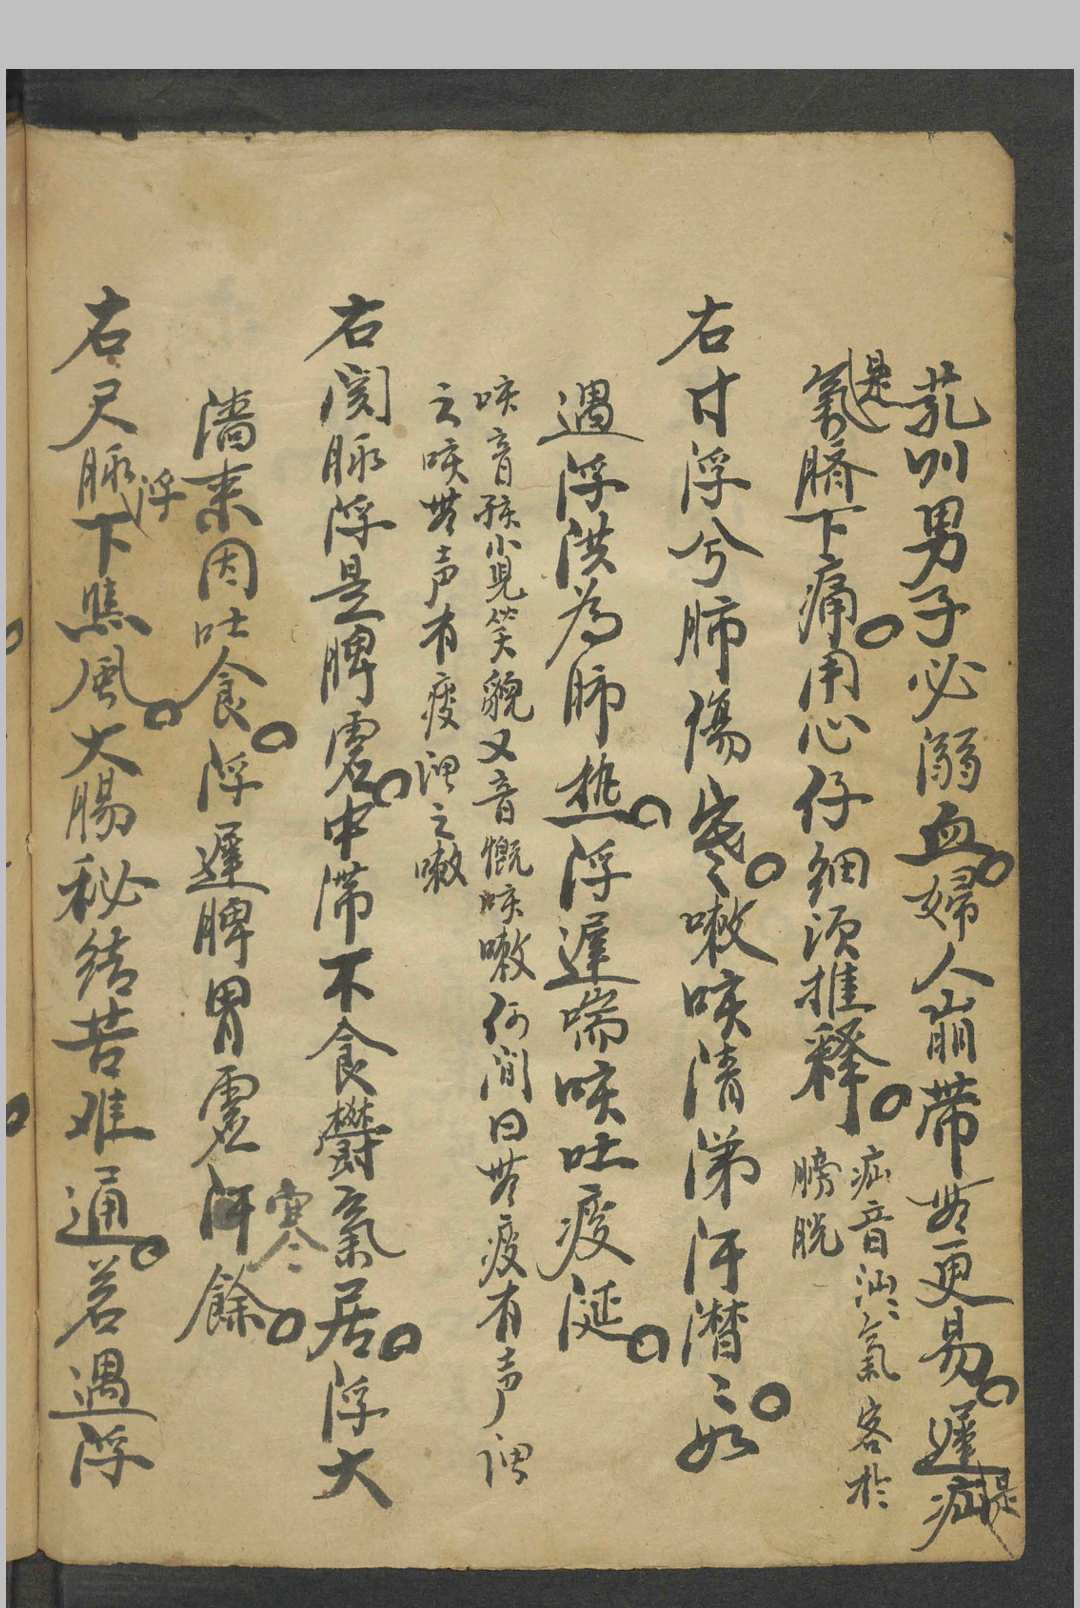 芤叫男子必溺血婦人崩帶無更易遲疝是
氣是臍下痛用心仔細須推釋疝音汕氣客於
膀胱
右寸浮兮肺傷寒嗽咳清涕汗潸〻如
遇浮洪為肺热浮遲喘咳吐痰涎
咳音孩小児笑貌又音慨咳嗽何间曰無痰有声谓
之咳無声有痰谓之嗽
右関脉浮是脾虛中滞不食欝氣居浮大
濇来因吐食浮遲脾胃虛寒汗餘
右尺脉浮下焦風大腸秘结苦难通若遇浮